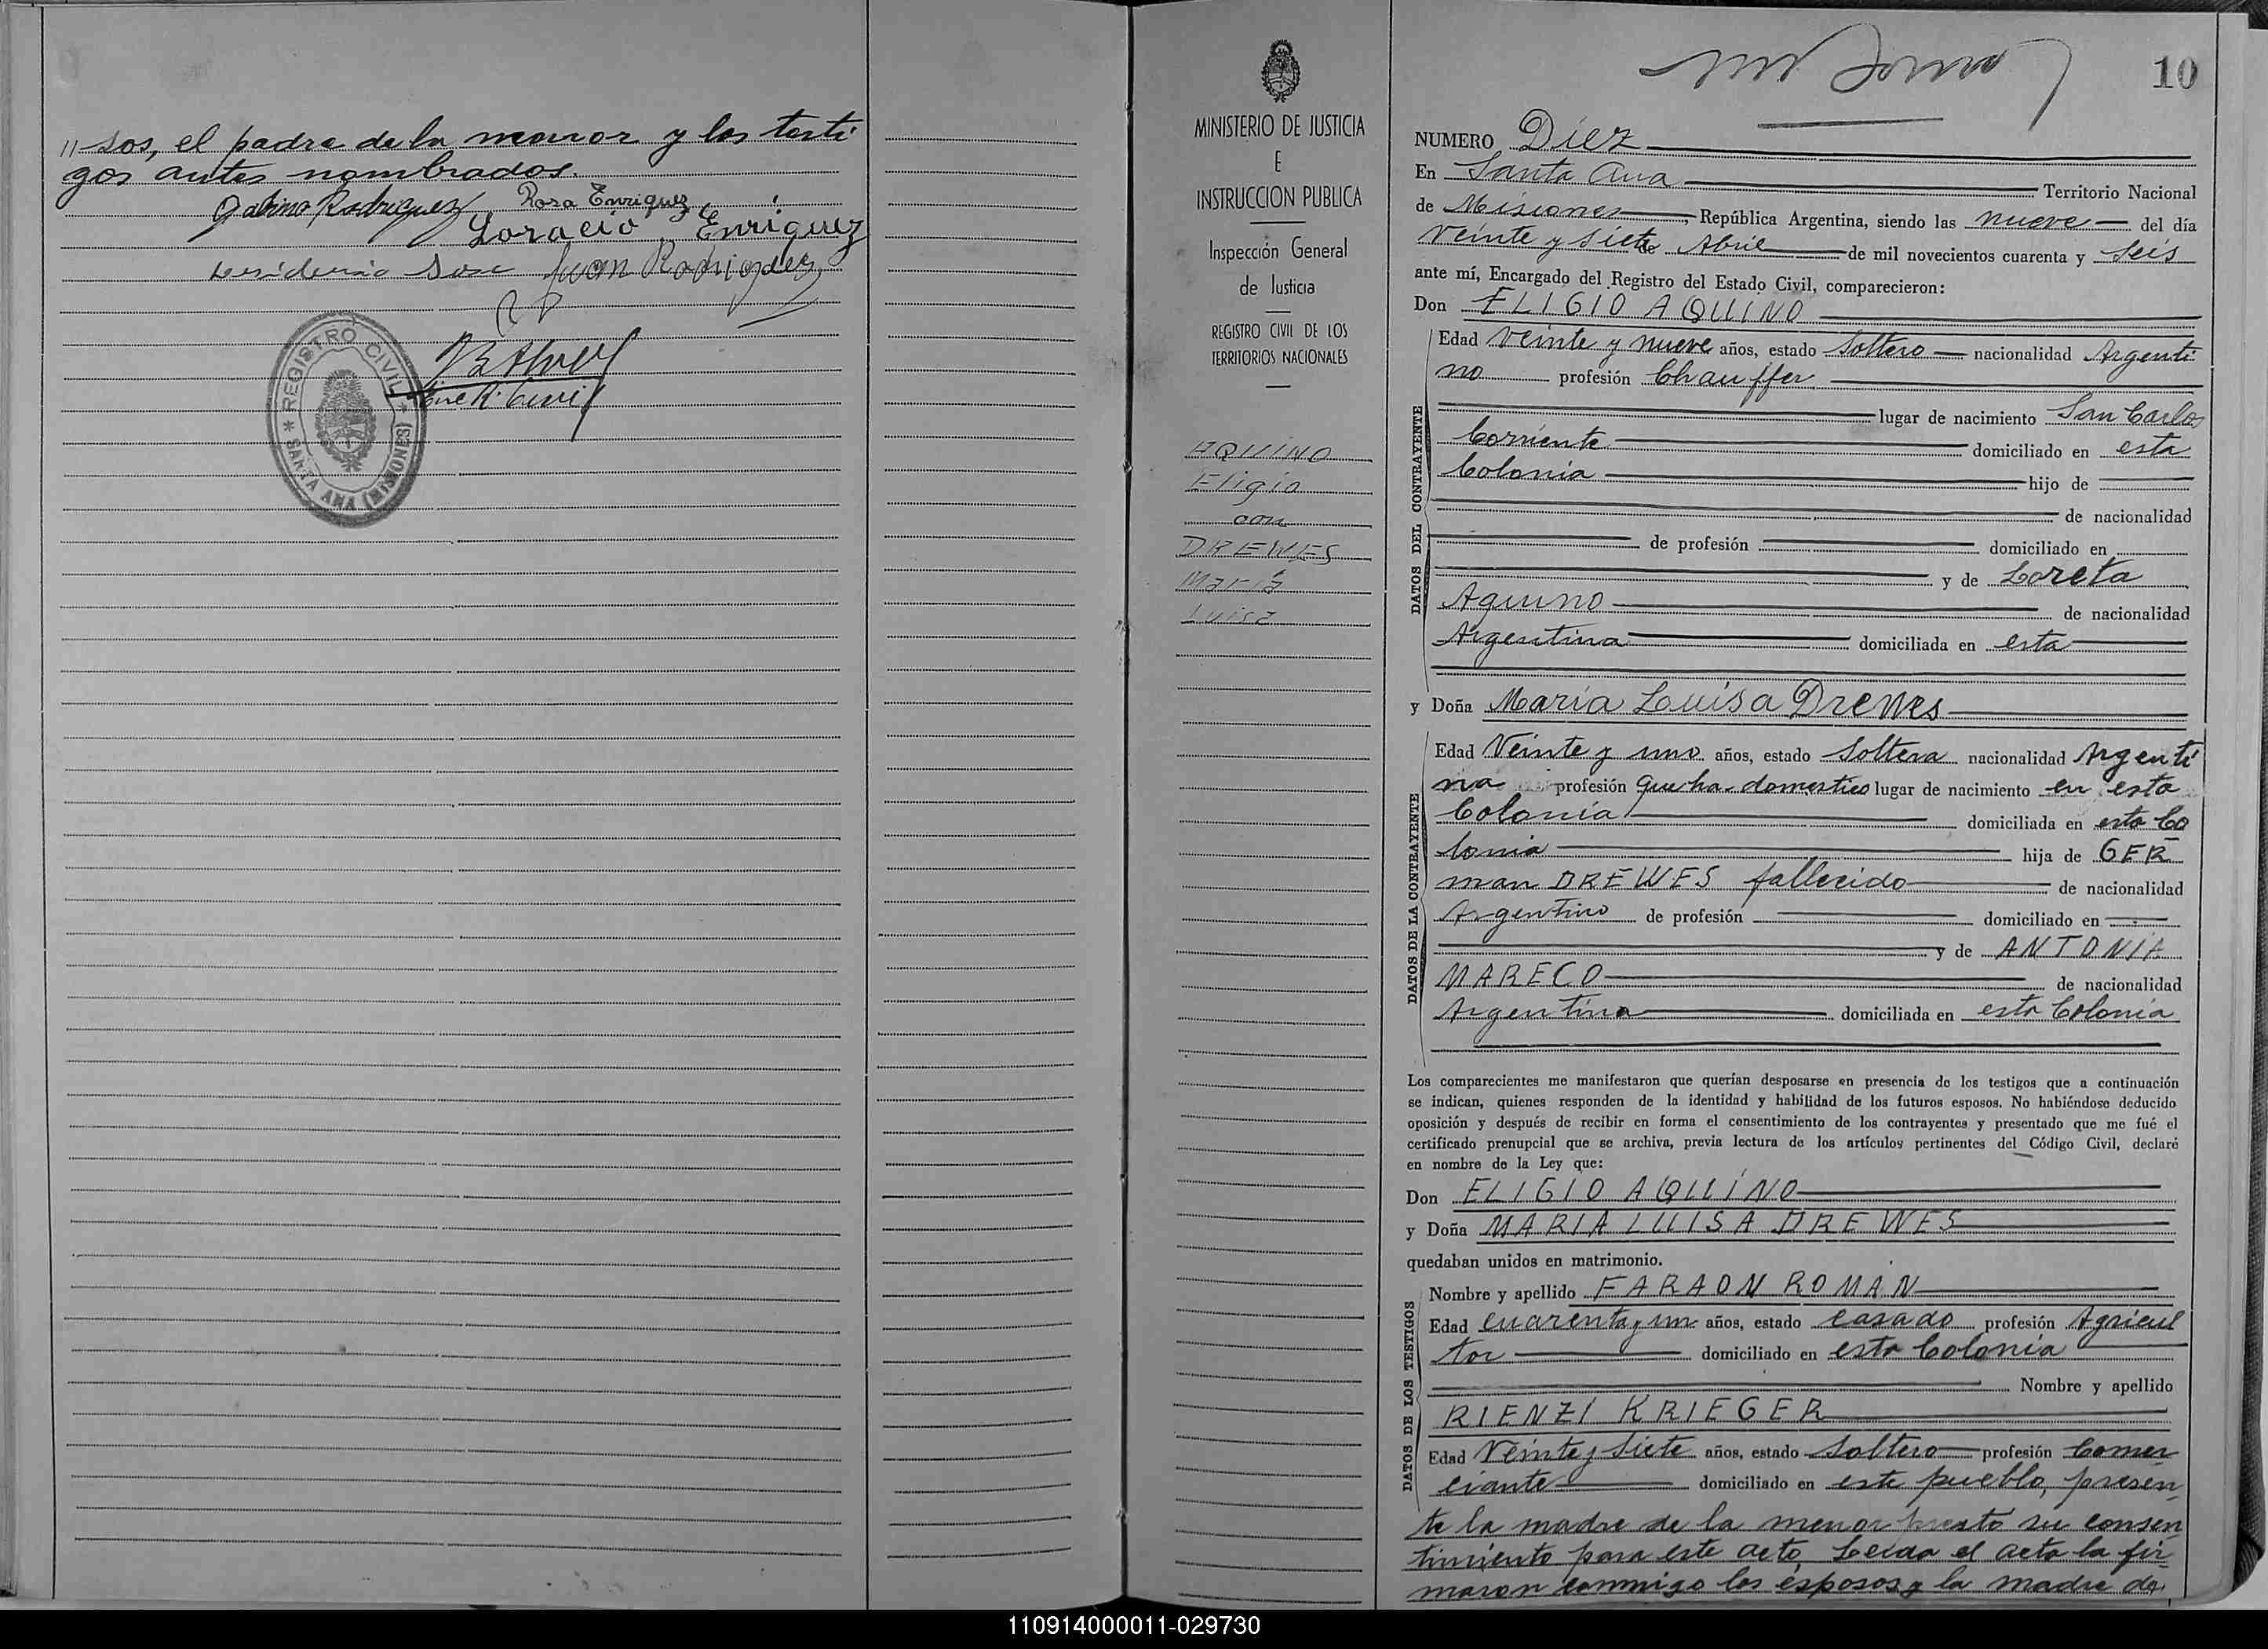 "sos, el padre de la menor y los testi-
gos antes nombrados.
Gabino Rodriguez Rosa Enriquez
Loracio Enriquez
Juan Rodriguez
REGISTRO CIVIL
* SANTA ANA (MISIONES) *
MINISTERIO DE JUSTICIA
E
INSTRUCCION PUBLICA
Inspección General
de Justicia
REGISTRO CIVIL DE LOS
TERRITORIOS NACIONALES
AQUINO
Eligio
con
DREWES
María
Luisa
10
NUMERO Diez
En Santa Ana Territorio Nacional
de Misiones, República Argentina, siendo las nueve del día
veinte y siete de Abril de mil novecientos cuarenta y seis
ante mí, Encargado del Registro del Estado Civil, comparecieron:
Don ELIGIO AQUINO
DATOS DEL CONTRAYENTE
Edad veinte y nueve años, estado soltero nacionalidad Argenti-
no profesión Chauffer
lugar de nacimiento San Carlos
Corriente domiciliado en esta
Colonia hijo de
de nacionalidad
de profesión domiciliado en
y de Loreta
Aquino de nacionalidad
Argentina domiciliada en esta
y Doña María Luisa Drewes
DATOS DE LA CONTRAYENTE
Edad Veinte y uno años, estado Soltera nacionalidad Argenti
na profesión Que ha. domestico lugar de nacimiento en esta
Colonia domiciliada en esta Co
lonia hija de GER
man DREWES fallecido de nacionalidad
Argentino de profesión domiciliado en
y de ANTONIA
MARECO de nacionalidad
Argentina domiciliada en esta Colonia
Los comparecientes me manifestaron que querían desposarse en presencia de los testigos que a continuación
se indican, quienes responden de la identidad y habilidad de los futuros esposos. No habiéndose deducido
oposición y después de recibir en forma el consentimiento de los contrayentes y presentado que me fué el
certificado prenupcial que se archiva, previa lectura de los artículos pertinentes del Código Civil, declaré
en nombre de la Ley que:
Don ELIGIO AQUINO
y Doña MARIA LUISA DREWES
quedaban unidos en matrimonio.
DATOS DE LOS TESTIGOS
Nombre y apellido FARAON ROMAN
Edad cuarenta y un años, estado casado profesión Agricul
tor domiciliado en esta Colonia
Nombre y apellido
RIENZI KRIEGER
Edad Veinte y siete años, estado soltero profesión Comer
ciante domiciliado en este pueblo, presen-
te la madre de la menor presto su consen
timiento para este acto, Leída el acta la fir-
maron conmigo los esposos y la madre de
110914000011-029730